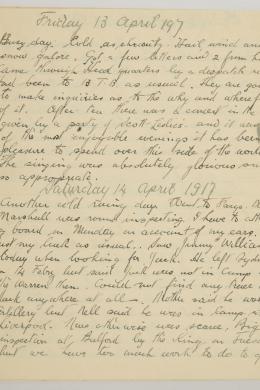 Friday 13 April 197
Busy day. Cold as charity. Hail, wind and
snow galore. Got a few letters and 2 from h
came through Head quarters by a despatch r
had been to B.T.B. as usual. They are go
to make inquiries as to the why and wheref
of it. After tea there was a concert in the
given by a party of Scott Ladies. and it was
of the most enjoyable evenings it has been
pleasure to spend over this side of the worl
The singing was absolutely glorious and
so appropriate.
Saturday 14 April 1917
Another cold rainy day. Went to
Marshall was round inspecting. I have to att
a board on Monday on account of my ears.
just my luck as usual. Saw Jimmy William
today when looking for Jack. He left Syd
in Febry but said Jack was not in camp
his Warren then. Could not find any trace
Jack anywhere at all. Mother said he was
artillery but Nell said he was in camp
Liverpool. News otherwise was scarce. Big
inspection at Bulford by the King on Tues
but we have too much work to do to g